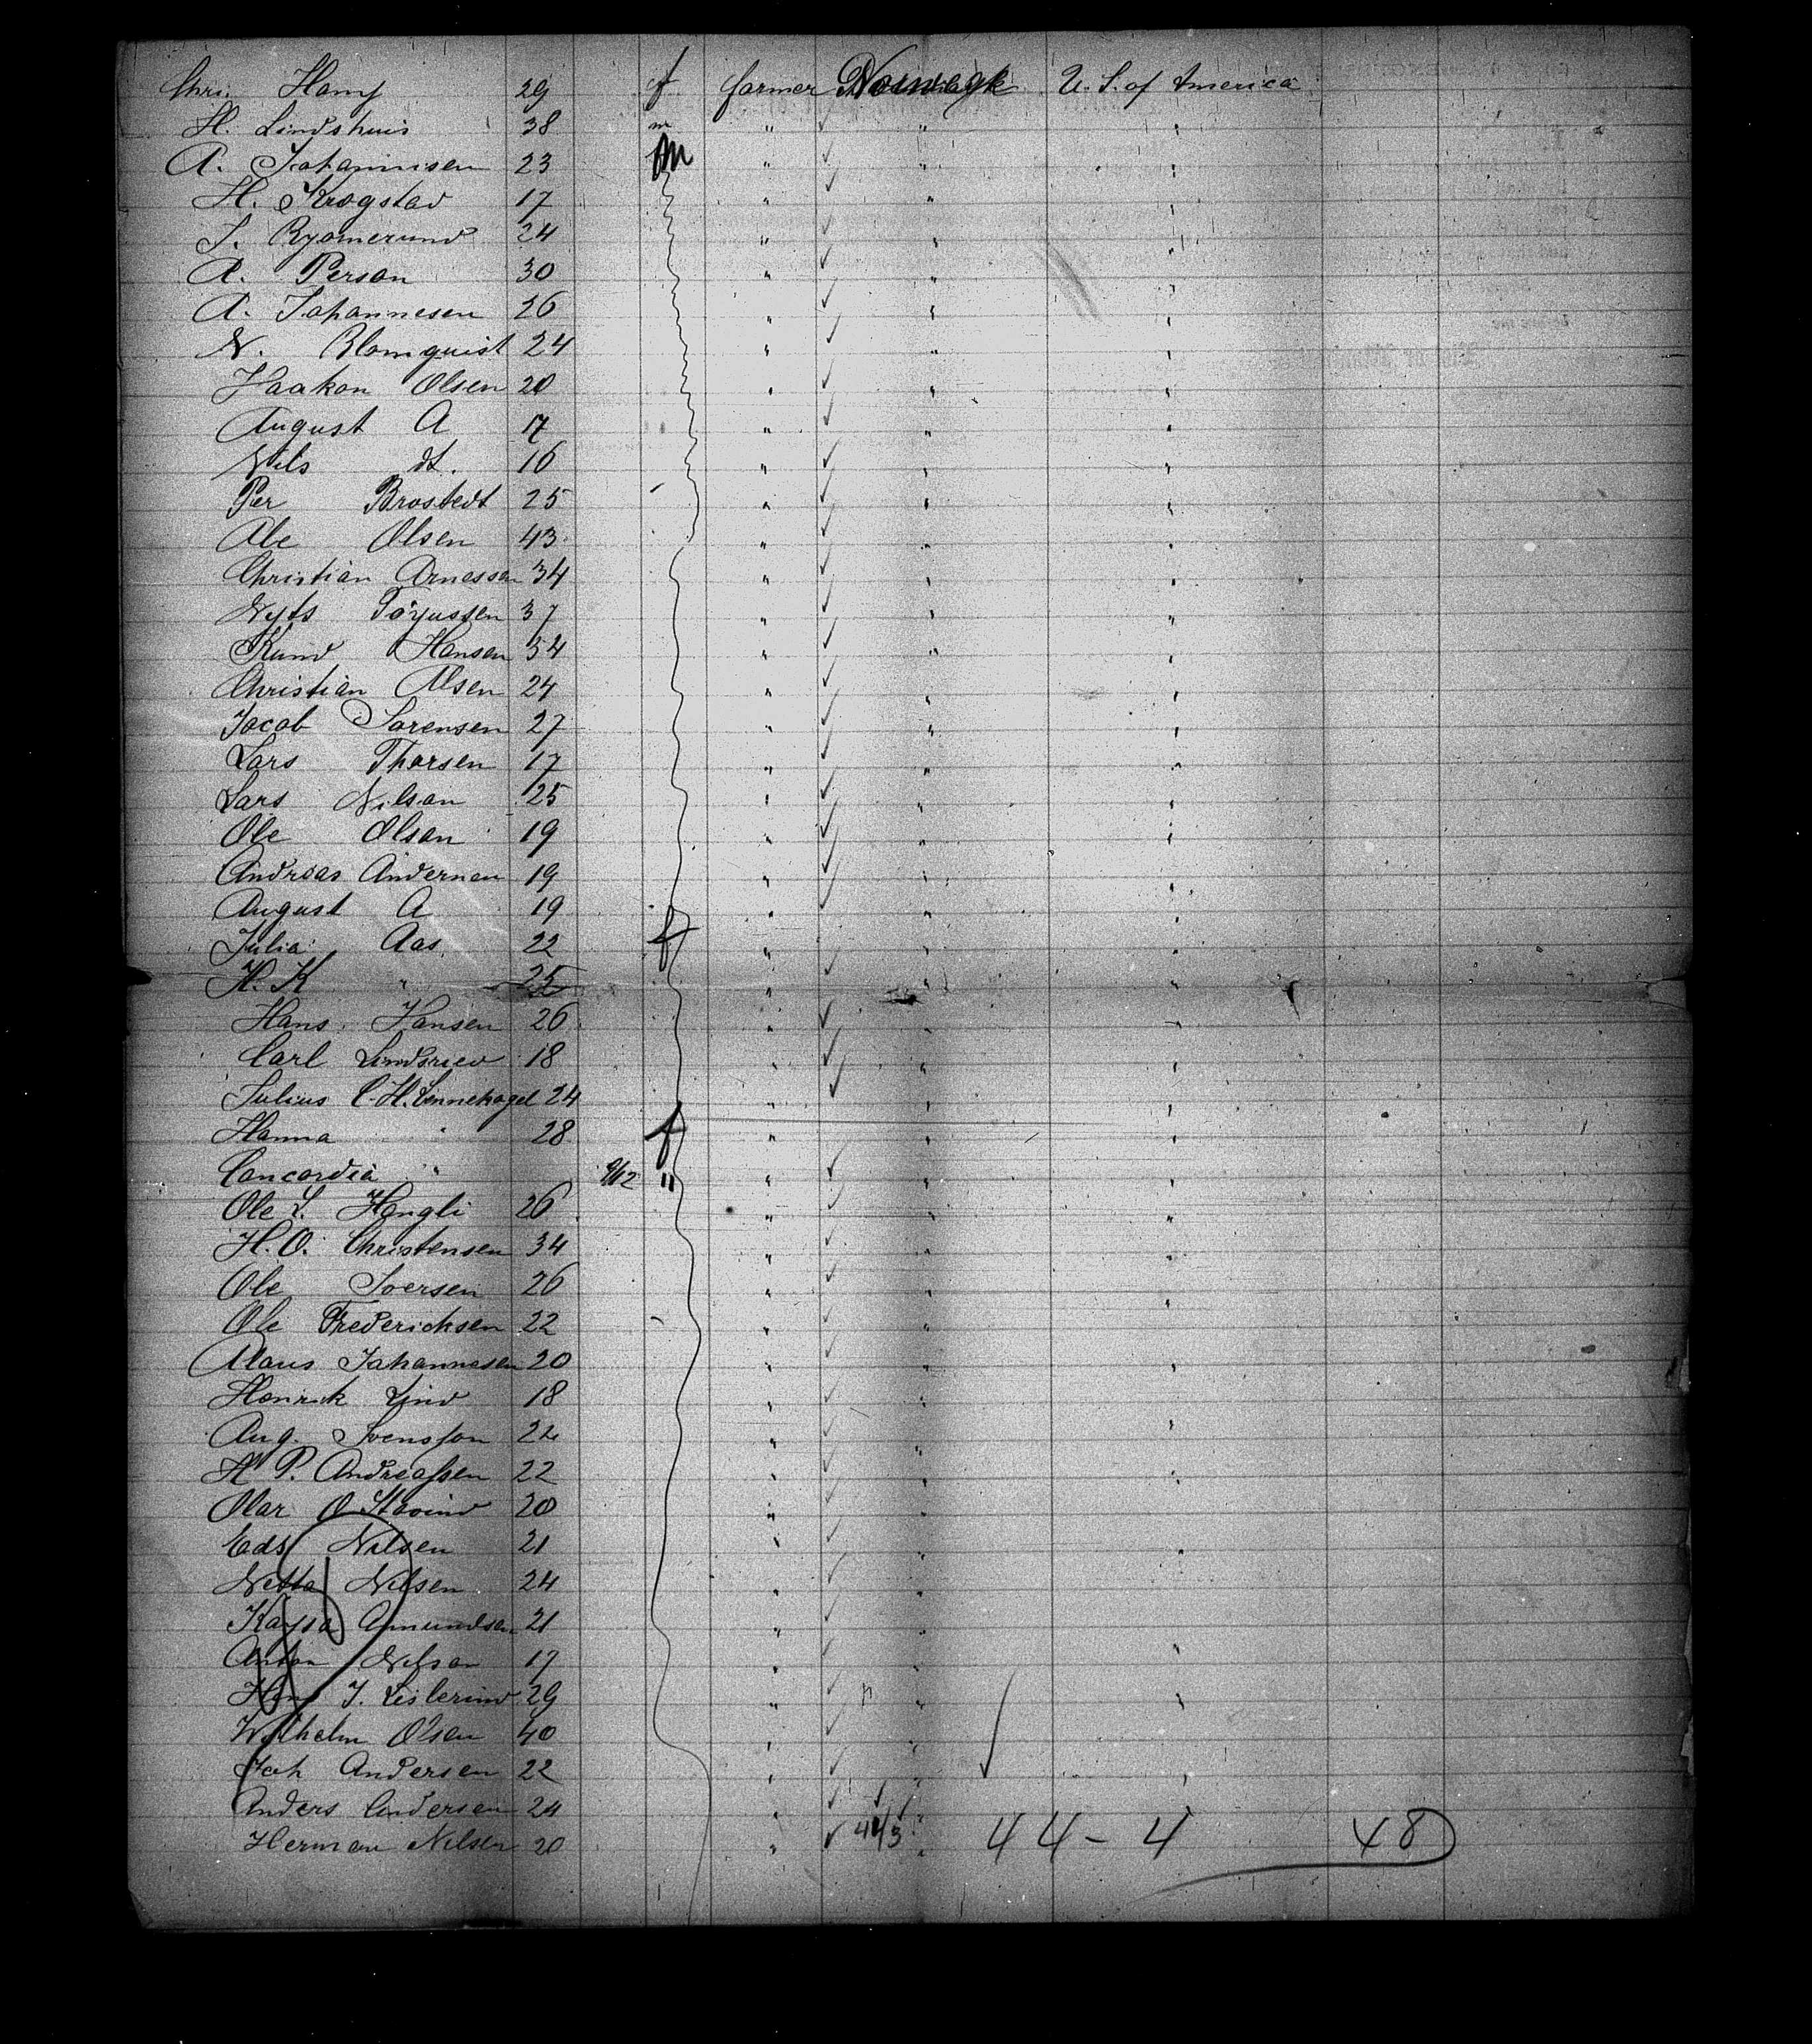 Chri. Hamf 29 f farmer Norwegk U. S. of America
H. Lindshuis 38 m " " "
A. Johannisen 23 M " " "
H. Krogstad 17 " " "
S. 24 " " "
A. Person 30 " " "
A. Johannesen 26 " " "
N. Blomquist 24 " " "
Haakon Olsen 20 " " "
August A 17 " " "
Nils dt. 16 " " "
Per Brostedt 25 " " "
Ole Olsen 43 " " "
Christian Arnessen 34 " " "
37 " " "
Knud Hansen 34 " " "
Christian Olsen 24 " " "
Jacob Sorensen 27 " " "
Lars Thorsen 17 " " "
Lars Nilson 25 " " "
Ole Olsen 19 " " "
Andreas Andernen 19 " " "
August A 19 " " "
Julia Aas 22 f " " "
H. K " 25 " " "
Hans Hansen 26 " " "
Carl 18 " " "
Julius C. H. Linnehagel 24 " " "
Hanna " 28 f " " "
Concordia " 9/12 " " " "
Ole L. Hengli 26 " " "
H. O. Christensen 34 " " "
Ole Iversen 26 " " "
Ole Fredericksen 22 " "
Claus Johannesen 20 " " "
Henrik Lind 18 " "
Aug. Svensson 22 " " "
H P. Andreassen 22 " " "
Olar O 20 " "
Eds Nilsen 21 " " "
Netta Nilsen 24 " "
Kaysa Amundsen 21 " "
Anton Nilson 17 " " "
Hans J. 29 " " "
Wilhelm Olsen 40 " "
Joh Andersen 22 " " "
Anders Andersen 24 " "
Herman Nilsen 20 " " 44-4 48